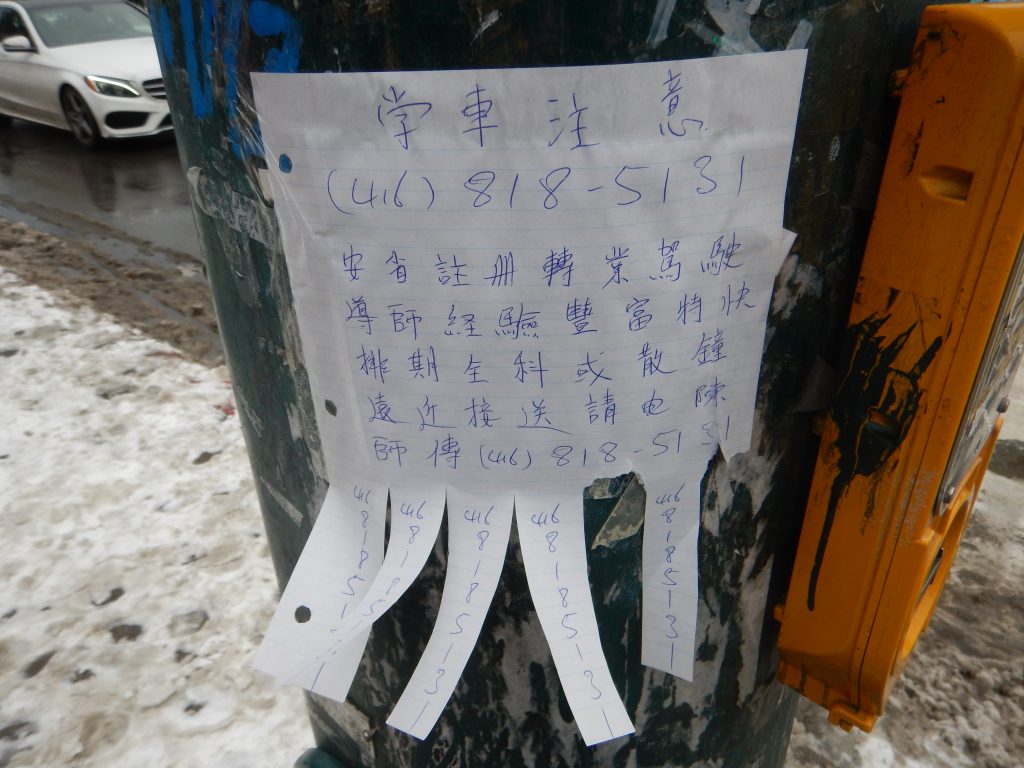 学車注意
(416) 818-5131
安省註册轉業駕駛
導師経驗豐富特快
排期全科或散鐘
遠近接送請电陳
師傅(416) 818-5131
416 818 5131
416 818 51
416 818 5131
416 818 5131
416 818 5131